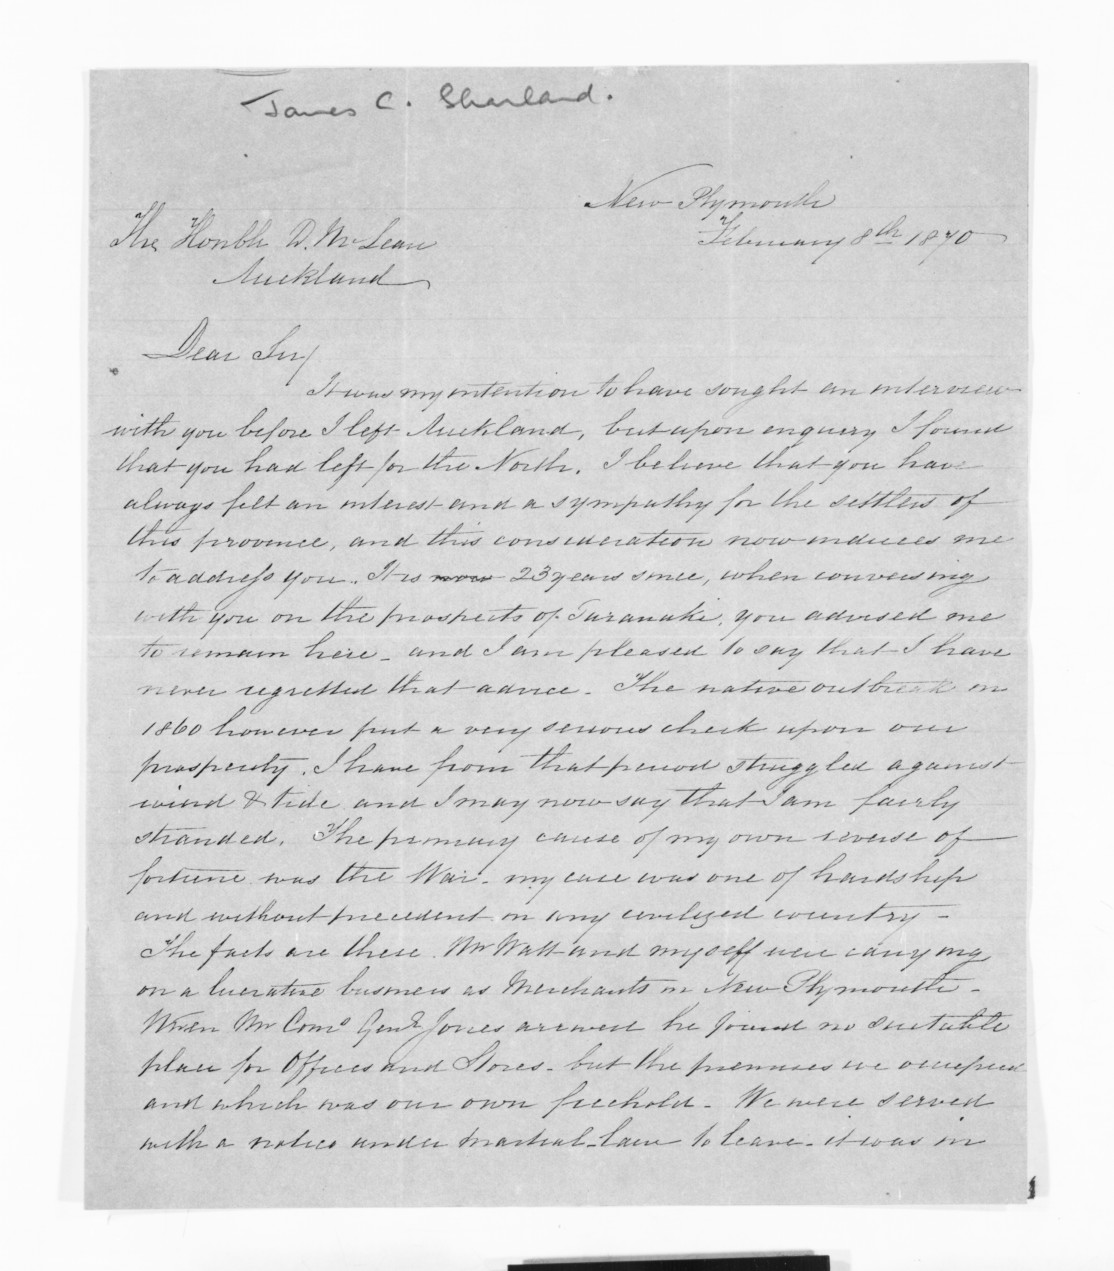 James C. Sharland.
New Plymouth
February 8th 1870
The Honble D. McLean
Auckland
Dear Sir/
It was my intention to have sought an interview
with you before I left Auckland, but upon enquiry I found
that you had left for the North. I believe that you have
always felt an interest and a sympathy for the settlers of
this province, and this consideration now induces me
to address you. It is now 23 years since, when conversing
with you on the prospects of Taranaki, you advised me
to remain here - and I am pleased to say that I have
never regretted that advice - The native outbreak in
1860 however put a very serious check upon our
prosperity. I have from that period struggled against
wind & tide and I may now say that I am fairly
stranded. The primary cause of my own reverse of
fortune was the War - my case was one of hardship
and without precedent in any civilized country -
The facts are these. Mr Watt and myself were carrying
on a lucrative business as Merchants in New Plymouth -
When Mr Comy Genl Jones arrived he found no suitable
place for Offices and Stores - but the premises we occupied
and which was our own freehold - We were served
with a notice under martial-law to leave - it was in